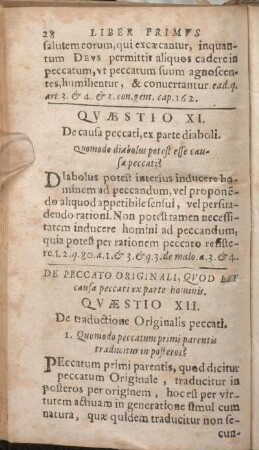 28 LIBER PRIMVS
salutem eorum, qui excæcantur, inquan-
tum DEVS permittit aliquos cadere in
peccatum, vt peccatum suum agnoscen-
tes, humilientur, & conuertantur. ead. q.
art. 3. & 4. & 3. con. gent. cap. 162.
QVÆSTIO XI.
De causa peccati, ex parte diaboli.
Quomodo diabolus potest esse cau-
sa peccati?
DIabolus potest interius inducere ho-
minem ad peccandum, vel proponẽ-
do aliquod appetibile sensui, vel persua-
dendo rationi. Non potest tamen necessi-
tatem inducere homini ad peccandum,
quia potest per rationem peccato resiste-
re. 1. 2. q. 80. a. 1. & 3. & q. 3. de malo. a. 3. & 4.
DE PECCATO ORIGINALI, QVOD EST
causa peccati ex parte hominis.
QVÆSTIO XII.
De traductione Originalis peccati.
1. Quomodo peccatum primi parentis
traducitur in posteros?
PEccatum primi parentis, quod dicitur
peccatum Originale, traducitur in
posteros per originem, hoc est per vir-
tutem actiuam in generatione simul cum
natura, quæ quidem traducitur non se-
cun-